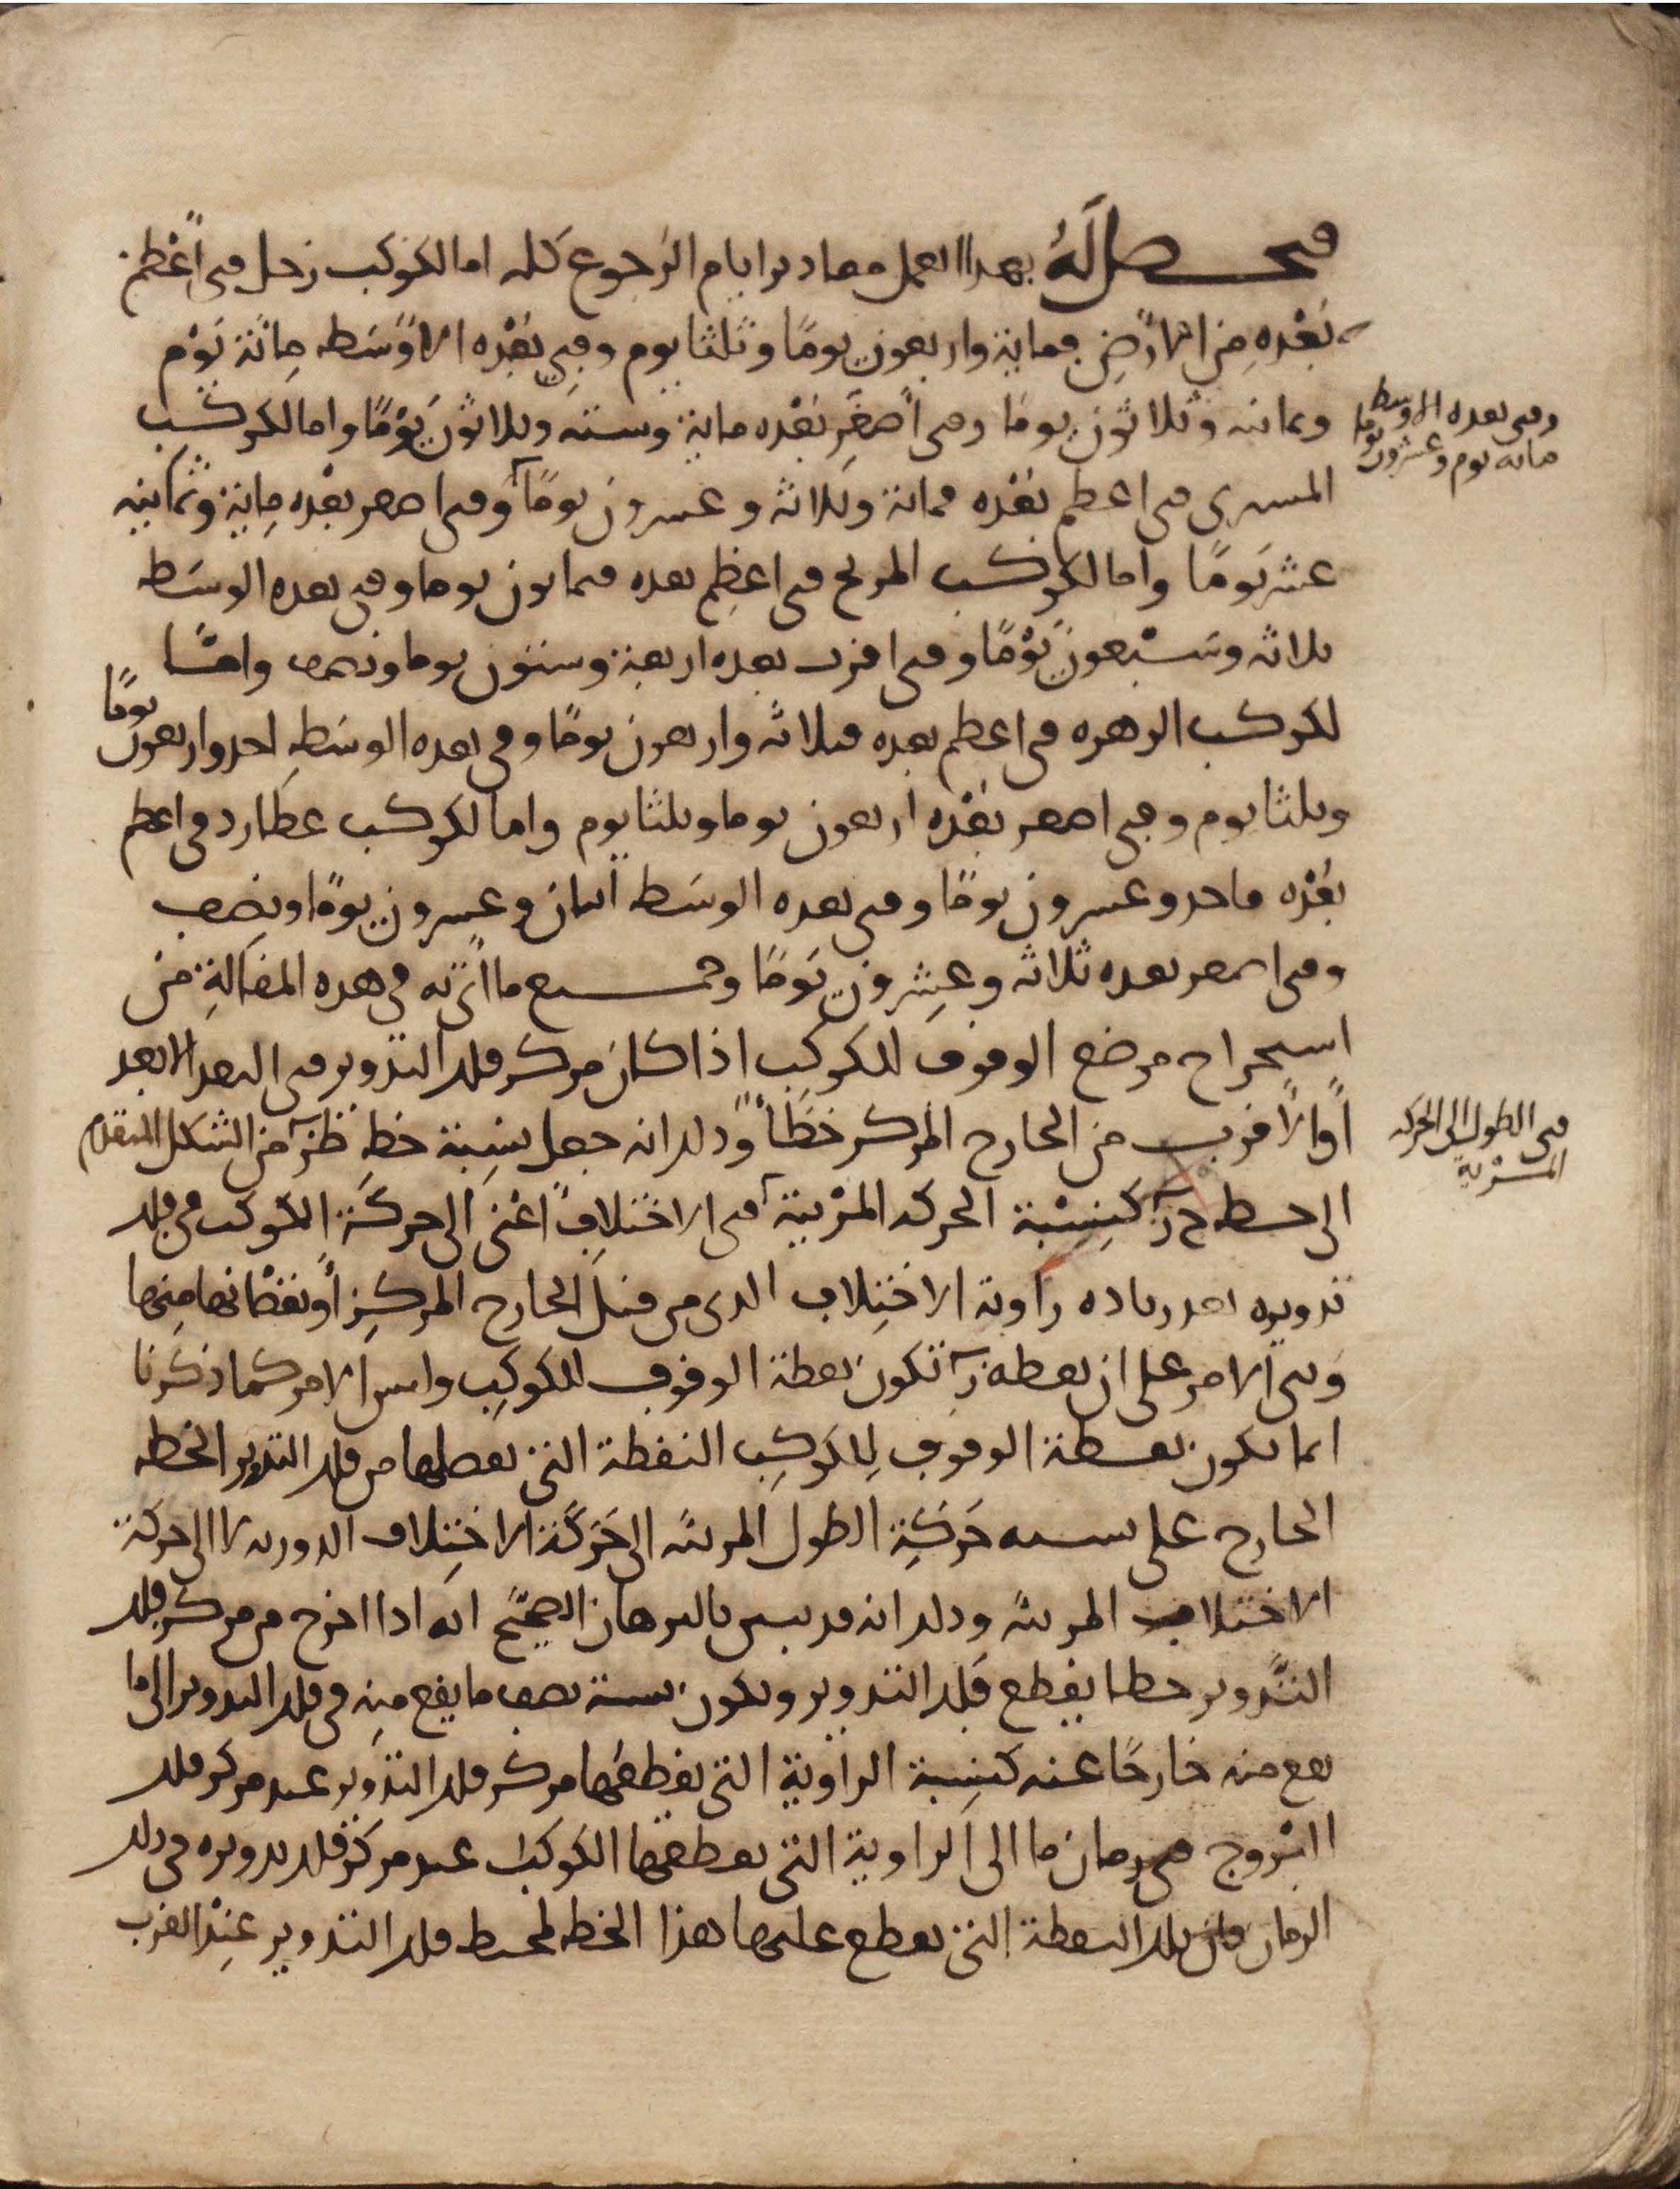 فحصل لَهُ بهدا العمل مقادير ايام الرجوع كله اما لكوكب زحل فى اعْظم
بُعْدِهِ مِن الارضِ فماية واربعون يومًا وثلثا يوم وفِى بُعْدِه الاوْسَط مِائة يَوْم
وثمانية وثلاثون يومًا وفى أصغرِ بُعْده ماية وستة وثلاثون يَوْمًا واما لكوكب
وفى بعده الاوسط
ماية يوم وعشرون يوما
المسرى فى اعظم بُعْده فماية وثلاثة وعسرون يومًا وفى اصعر بعْده مِاية وثمانيه
عشر يَومًا واما لكوكب المريخ فى اعظِم بعده فثمانون يوما وفى بعده الوسَط
ثلاثه وسَبْعون يَوْمًا وفى اقرب بعده اربعة وستون يوما ونصف وامّا
لكوكب الزهره فى اعظم بعده فثلاثة واربعون يومًا وفى بعده الوسَطِ احد واربعون يومًا
وثلثا يوم وفى اصعر بُعْده اربعون يوما وثلثا يوم واما لكوكب عطارد فى اعظم
بُعْده فاحد وعسرون يومًا وفى بعده الوسَط اثنان وعسرون يومًا ونِصف
وفى اصعر بعده ثلاثة وعِشرون يَومًا وجميع ما اتى به فى هده المقالةِ من
اسحراج موضع الوقوف للكوكب اذا كان مركز فلك التدوير فى البعد الابعد
أوالاقرب من الخارج المركز خطَأٌ ودلك انه جعل نِسْبة خط طز من الشكل المتقدم
فى الطول الى الحركه
المرْيية
الى خط حز كنِسْبة الحركه المرْيية فى الاختلافِ اعْنى الى حركَة الكوكب فى فلك
تدويره بعد زياده زاوية الاختِلاف الدى من قبل الخارج المركز أو نقصانها مِنها
وبنى الامر على ان نقطه ز تكون نقطة الوقوف للكوكِب وليس الامر كما ذكرنا
انما تكون نقطة الوقوف لِلكوكب النقطة التى يفصلها من فلك التدوير الخط
الخارج على نسبه حَرَكةِ الطول المريية الى حَرَكة الاختِلاف الدوريه لا الى حركة
الاختلاف المريية ودلك انه قد تبين بالبرهان الصحِيح انه ادا اخرج من مركز فلك
التَّدوير خطا يقطع فلك التدوير وتكون نسبة نصف ما يقع مِنه فى فلك التدوير الى ما
يقع منه خارجًا عنه كنِسبة الزاوية التى يقطعُها مركز فلك التدوير عند مركز فلك
البُروج فى زمان ما الى الزاوية التى يقطعها الكوكب عند مركز فلك تدويره فى دلك
الزمان فان تلك النقطة التى يقطع عليها هذا الخط لمحيط فلك التدوير عِنْد القرب